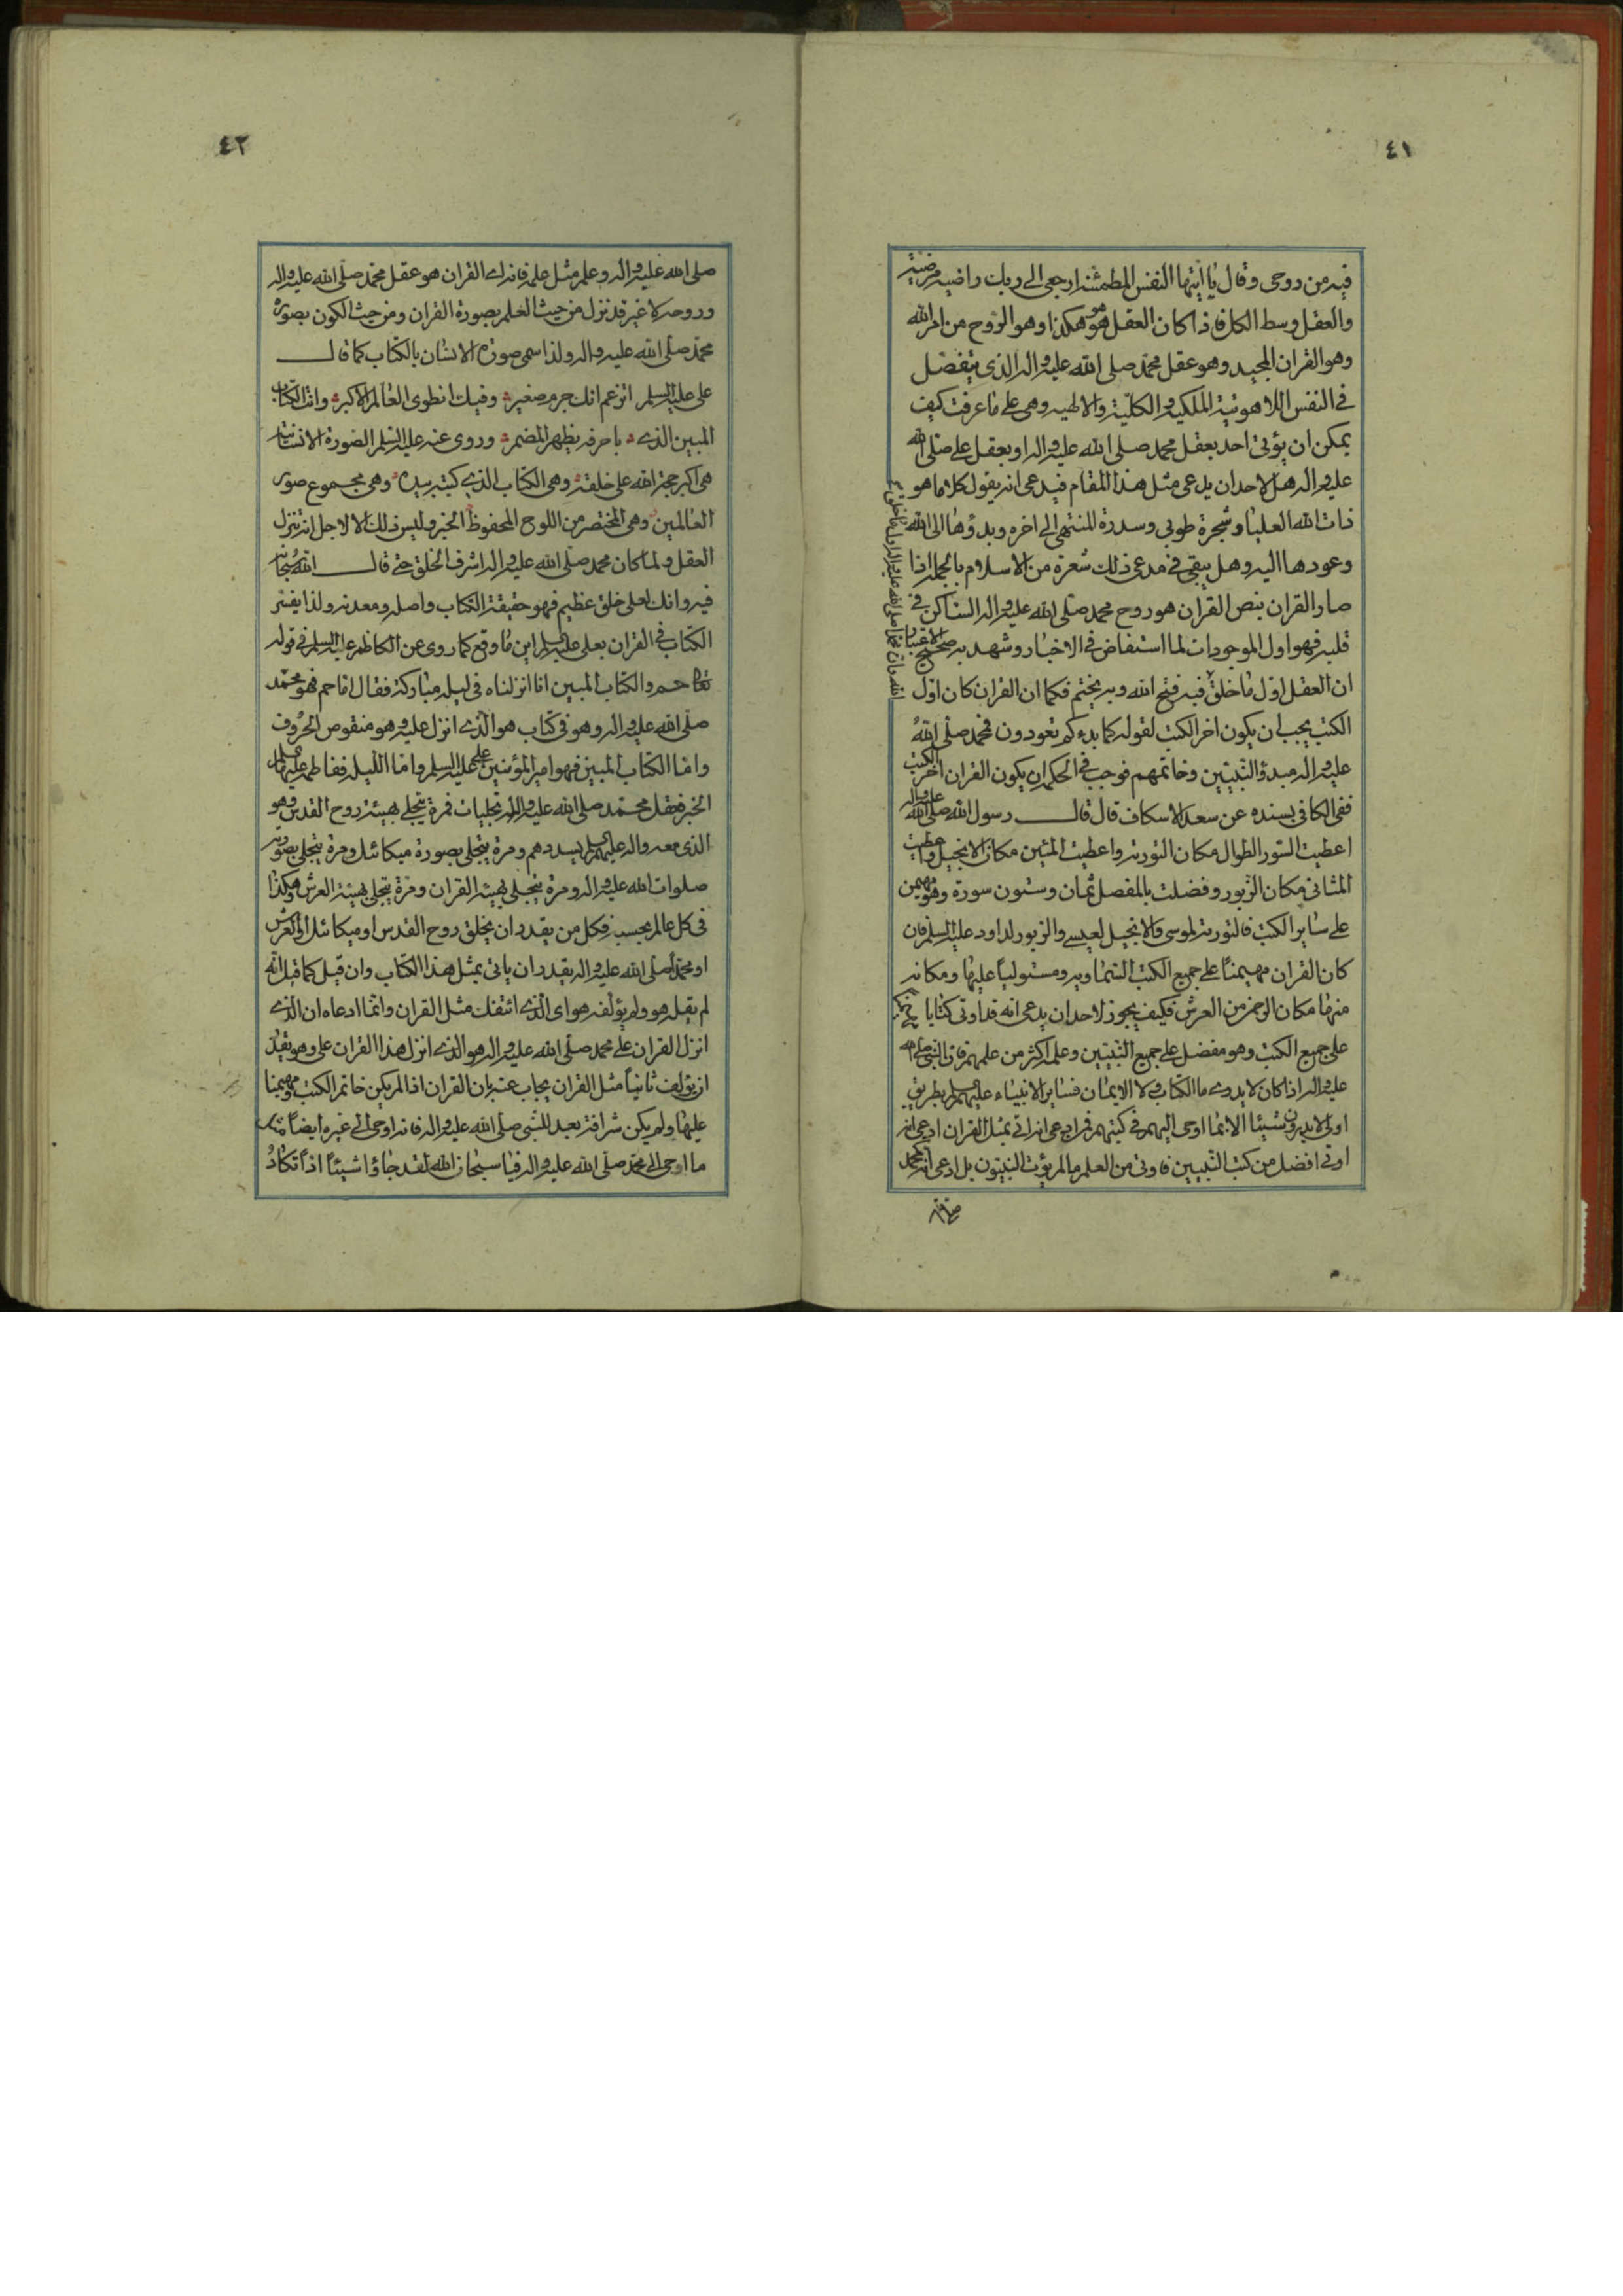 ٤١
فيه من روحى وقال يا ايتها النفس المطمئنه ارجعى الى ربك راضيه مرضية
والعقل وسط الكل فاذا كان العقل هو هكذا وهو الروح من امر الله
وهو القران المجيد وهو عقل محمد صلى الله عليه واله الذى يتفضل
فى النفس اللاهوتية الملكية والكلية والالهيه وهى على ما عرفت كيف
يمكن ان يؤتى احد بعقل محمد صلى الله عليه واله او بعقل على صلى الله
عليه واله هل لاحد ان يدعى مثل هذا المقام فيدعى انه يقول كلاما هو
ذات الله العليا وشجرة طوبى وسدرة المنتهى الى اخره وبدؤها الى الله
وعودها اليه وهل يبقى فى مدعى ذلك شعرة من الاسلام بالجمله اذا
صار القران بنص القران هو روح محمد صلى الله عليه واله الساكن فى
قلبه فهو اول الموجودات لما استفاض فى الاخبار وشهد به صحيح الاعتبار
ان العقل اول ما خلق فبه فتح الله وبه يختم فكما ان القران كان اول
الكتب يجب ان يكون اخر الكتب لقوله كما بدءكم تعودون فمحمد صلى الله
عليه واله مبدؤ النبيين وخاتمهم فوجب فى الحكم ان يكون القران اخر الكتب
ففى الكافى بسنده عن سعد الاسكاف قال قال رسول الله صلى الله عليه واله
اعطيت السور الطوال مكان التورية واعطيت المئين مكان الانجيل واعطيت
المثانى مكان الزبور وفضلت بالمفصل ثمان وستون سورة وهو مهيمن
على ساير الكتب فالتورية لموسى والانجيل لعيسى والزبور لداود عليه السلم فان
كان القران مهيمنا على جميع الكتب السماويه ومستوليا عليها ومكانه
منها مكان الرحمن من العرش فكيف يجوز لاحد ان يدعى انه قد اوتى كتابا
على جميع الكتب وهو مفضل على جميع النبيين وعلمه اكثر من علمهم فان النبى صلى الله
عليه واله اذا كان لا يدرى ما الكتاب ولا الايمان فساير الانبياء عليهم السلم بطريق
اولى لا يدرون شيئا الا بما اوحى اليهم فى كتبهم فمن ادعى انه اتى بمثل القران ادعى انه
اوتى افضل من كتب النبيين فاوتى من العلم ما لم يؤت النبيون بل ادعى انه محمد
الله وان محمدا صلى الله عليه واله اول ما خلق
٤٢
صلى الله عليه واله وعلمه مثل علمه فانه اى القران هو عقل محمد صلى الله عليه واله
وروحه لا غير قد نزل من حيث العلم بصورة القران ومن حيث الكون بصورة
محمد صلى الله عليه واله ولذا سمى صورة الانسان بالكتاب كما قال
على عليه السلم اتزعم انك جرم صغير وفيك انطوى العالم الاكبر وانت الكتاب
المبين الذى باحرفه يظهر المضمر وروى عنه عليه السلم الصورة الانسانية
هى اكبر حجة الله على خلقه وهى الكتاب الذى كتبه بيده وهى مجموع صور
العالمين وهى المختصر من اللوح المحفوظ الخبر وليس ذلك الا لاجل انه تنزل
العقل ولما كان محمد صلى الله عليه واله اشرف الخلق حتى قال الله سبحانه
فيه وانك لعلى خلق عظيم فهو حقيقة الكتاب واصله ومعدنه ولذا يفسر
الكتاب فى القران بعلى عليه السلم اين ما وقع كما روى عن الكاظم عليه السلم فى قوله
تعالى حم والكتاب المبين انا انزلناه فى ليله مباركة فقال اما حم فهو محمد
صلى الله عليه واله وهو فى كتاب هود الذى انزل عليه وهو منقوص الحروف
واما الكتاب المبين فهو امير المؤمنين على عليه السلم واما الليله ففاطمه عليها السلم
الخبر فعقل محمد صلى الله عليه واله له تجليات فمرة يتجلى بهيئة روح القدس وهو
الذى معه واله عليهم السلم يسددهم ومرة يتجلى بصورة ميكائل ومرة يتجلى بصورته
صلوات الله عليه واله ومرة يتجلى بهيئة القران ومرة يتجلى بهيئة العرش وهكذا
فى كل عالم بحسبه فكل من يقدر ان يخلق روح القدس او ميكائل او العرش
او محمدا صلى الله عليه واله يقدر ان ياتى بمثل هذا الكتاب وان قيل كما قيل انه
لم يقله هو ولم يؤلف هواى الذى ائتفك مثل القران وانما ادعاه ان الذى
انزل القران على محمد صلى الله عليه واله هو الذى انزل هذا القران على وهو يقدر
ان يؤلف ثانيا مثل القران يجاب عنه بان القران اذا لم يكن خاتم الكتب ومهيمنا
عليها ولم يكن شرافة بعد للنبى صلى الله عليه واله فانه اوحى الى غيره ايضا مثل
ما اوحى الى محمد صلى الله عليه واله فيا سبحان الله لقد جاؤا شيئا ادا تكاد